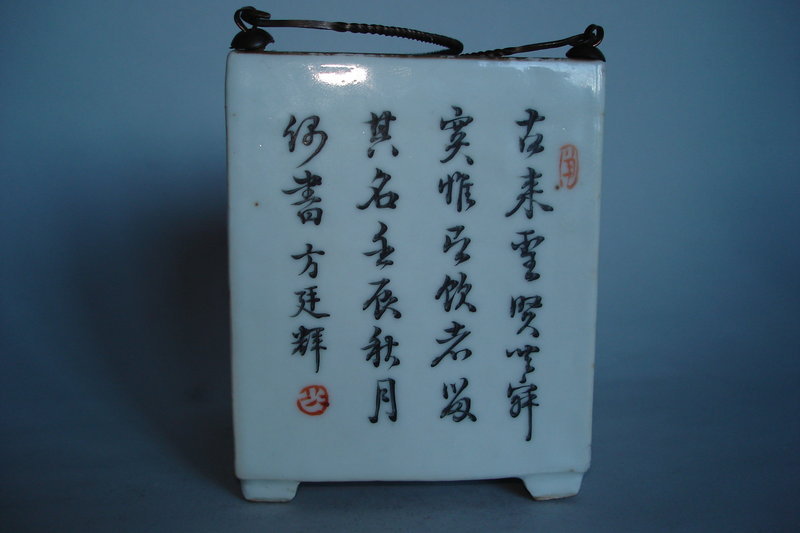 古来聖賢皆寂
寞惟有飲者留
其名壬辰秋月
偶書方廷輝